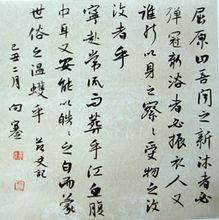 屈原曰吾聞之新沐者必
彈冠新浴者必振衣人又
誰能以身之察察受物之汶
汶者乎
寧赴常流而葬乎江魚腹
中耳又安能以皓皓之白而蒙
世俗之溫蠖乎 史記
己丑二月